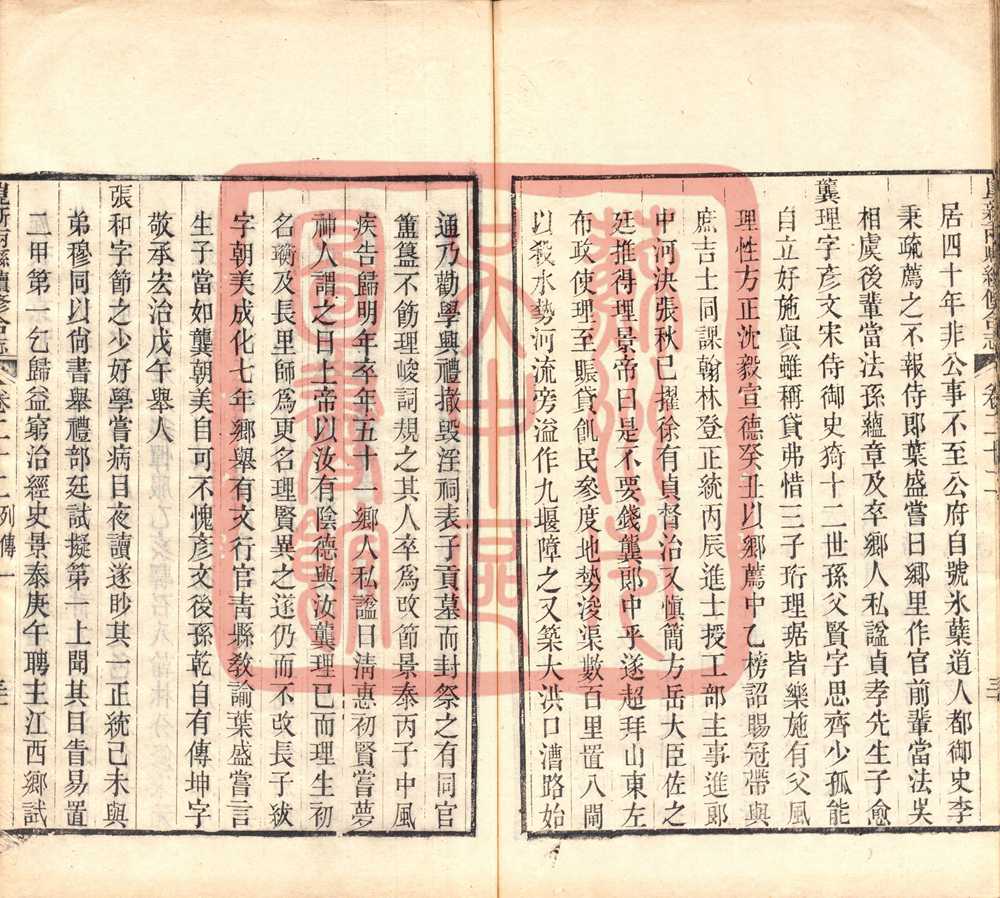 居四十年非公事不至公府自號氷蘖道人都御史李
秉疏薦之不報侍郎葉盛嘗曰鄉里作官前輩當法吳
相虞後輩當法孫蘊章及卒鄉人私諡貞孝先生子愈
龔理字彥文宋侍御史猗十二世孫父賢字思齊少孤能
自立好施與雖稱貸弗惜三子珩理琚皆樂施有父風
理性方正沈毅宣德癸丑以鄉薦中乙榜詔賜冠帶與
庶吉士同課翰林登正統丙辰進士授工部主事進郎
中河決張秋已擢徐有貞督治又慎簡方岳大臣佐之
廷推得理景帝曰是不要錢龔郎中乎遂超拜山東左
布政使理至賑貸飢民參度地勢浚渠數百里置八閘
以殺水勢河流旁溢作九堰障之又築大洪口漕路始
通乃勸學興禮撤毀淫祠表子貢墓而封祭之有同官
簠簋不飭理峻詞規之其人卒爲改節景泰丙子中風
疾告歸明年卒年五十一鄉人私諡曰淸惠初賢嘗夢
神人謂之曰上帝以汝有陰德與汝龔理已而理生初
名衡及長里師爲更名理賢異之遂仍而不改長子紱
字朝美成化七年鄉舉有文行官青縣敎諭葉盛嘗言
生子當如龔朝美自可不愧彥文後孫乾自有傳坤字
敬承宏治戊午舉人
張和字節之少好學嘗病目夜讀遂眇其一正統己未與
弟穆同以尙書舉禮部廷試擬第一上聞其目眚易置
二甲第一乞歸益窮治經史景泰庚午聘主江西鄉試
崑新兩縣續修合志
卷二十二列傳一